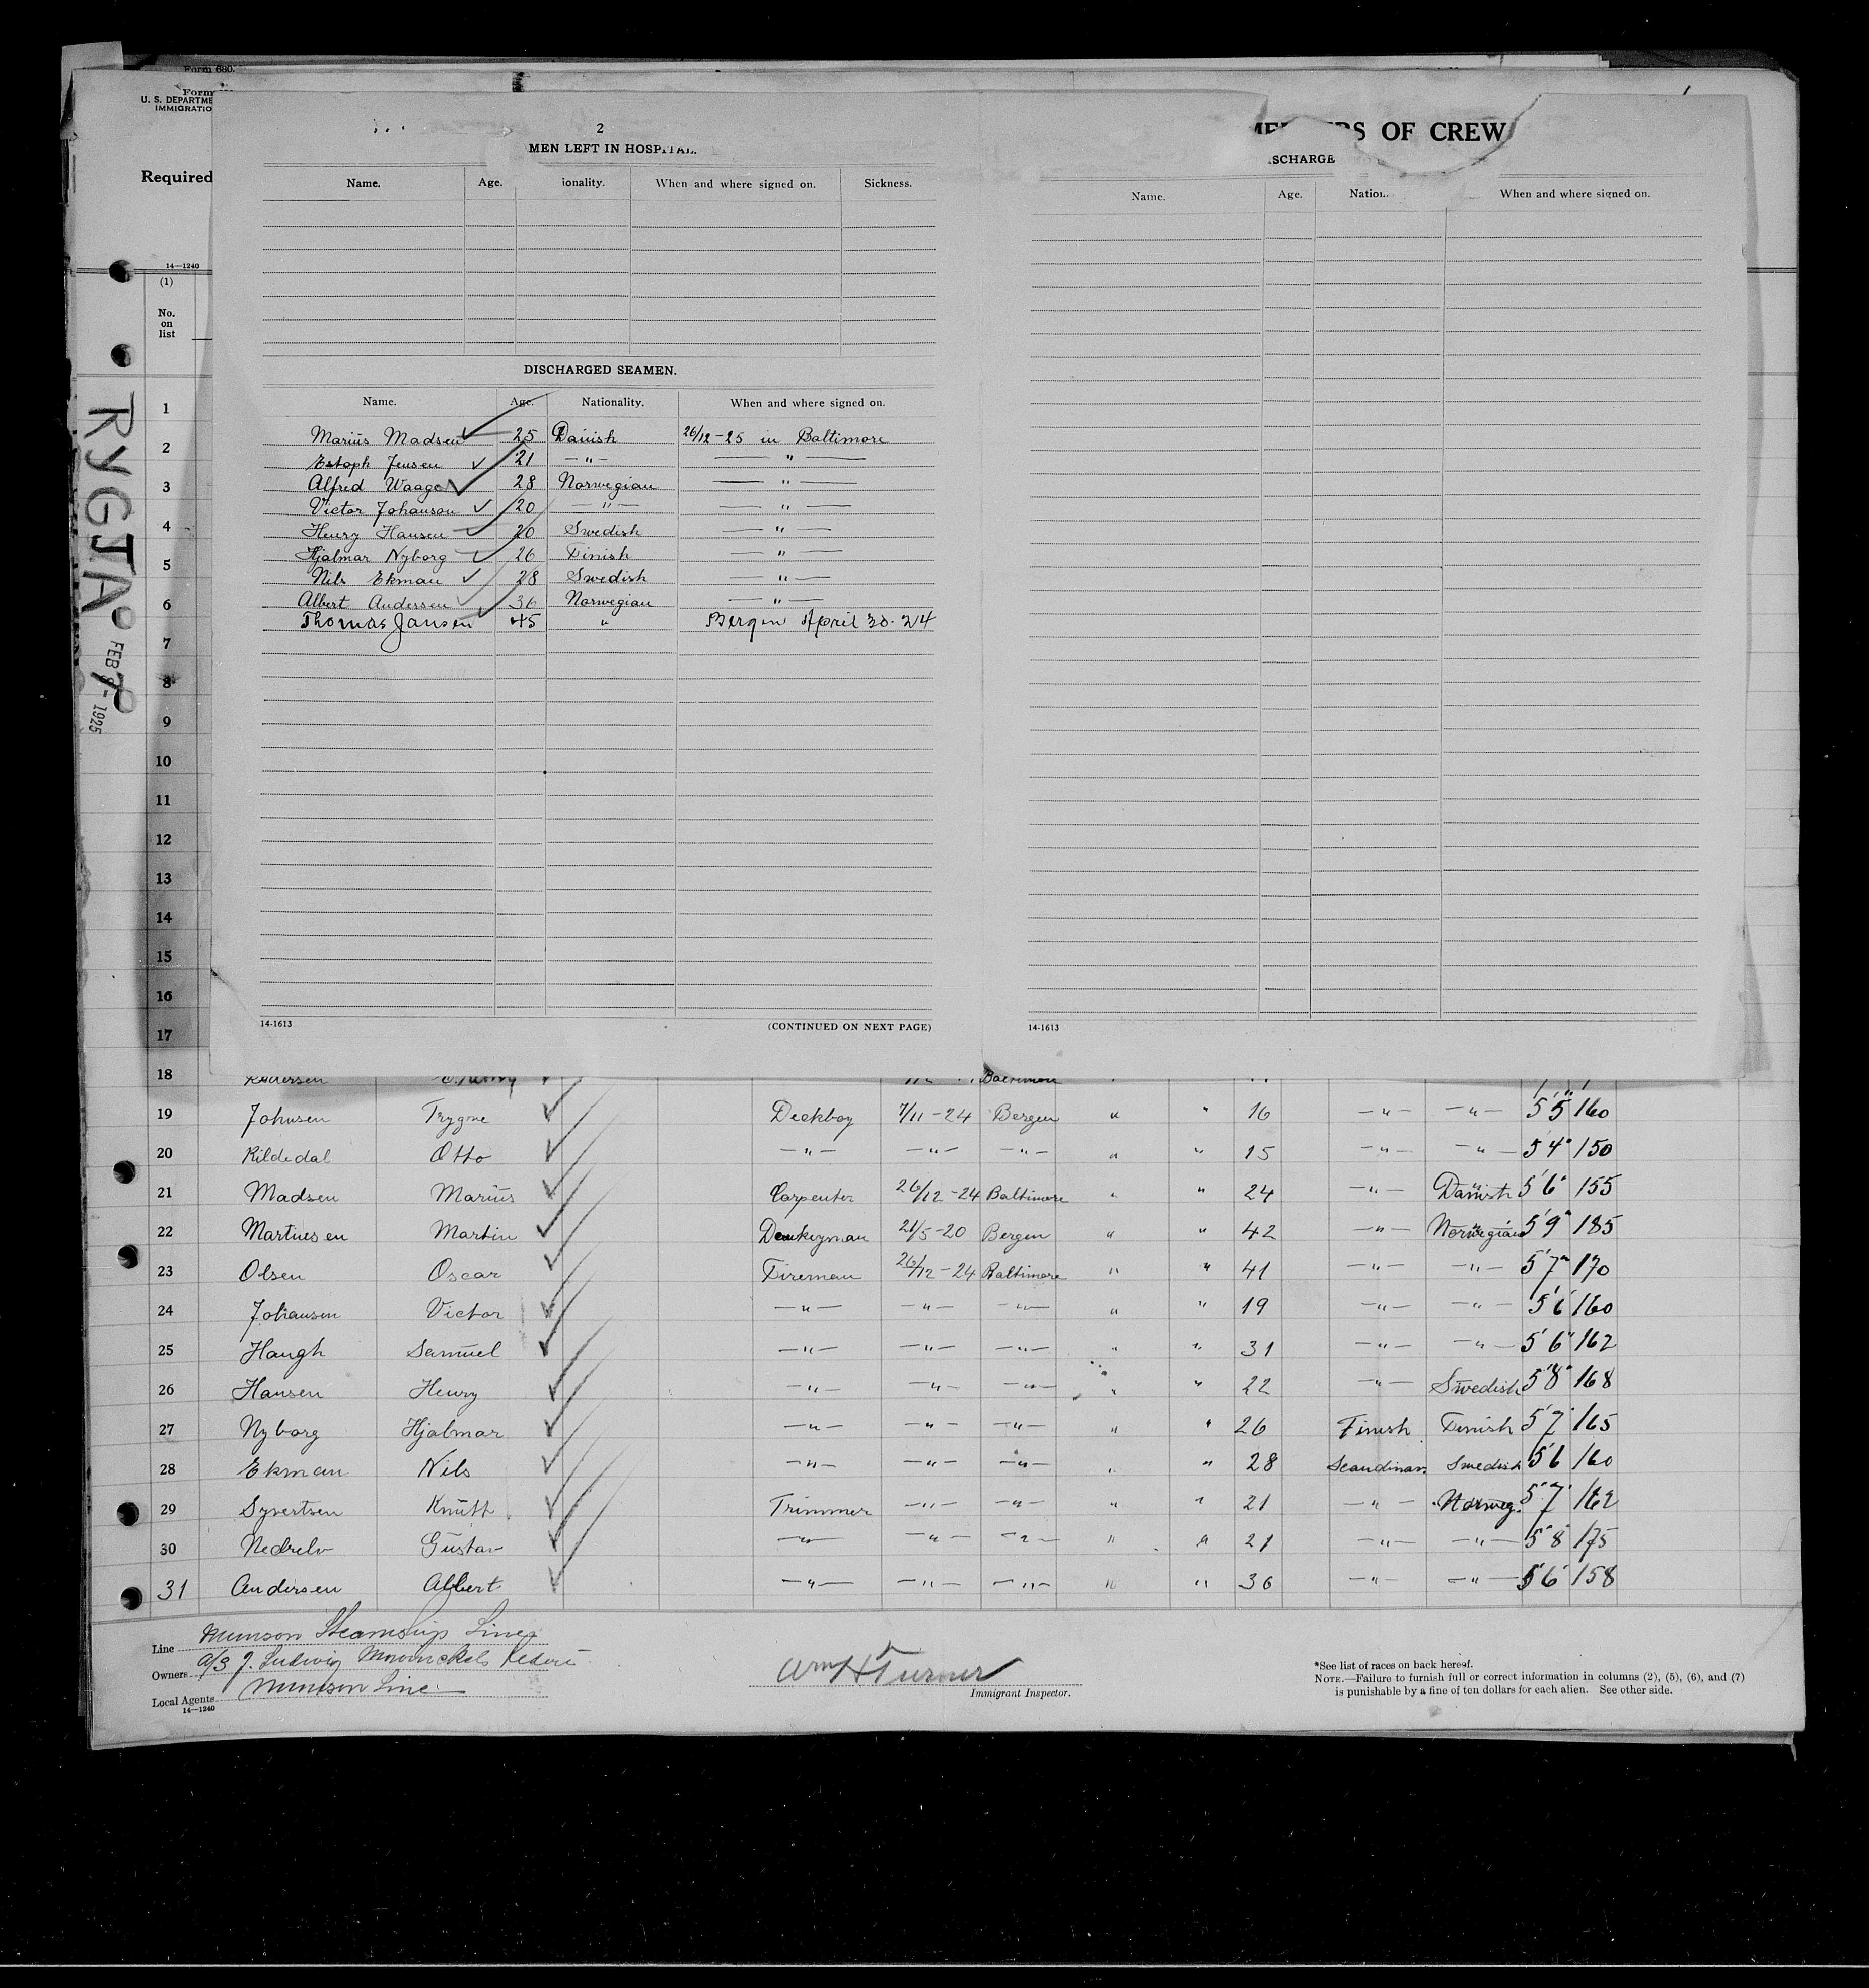 Form 680.
Form
U. S. DEPARTME
IMMIGRATIO
Required
14—1240
(1)
No.
on
list
RYGJA
FEB 1925
2
MEN LEFT IN HOSPITAL.
Name. Age. ionality. When and where signed on. Sickness.
DISCHARGED SEAMEN.
Name. Age. Nationality. When and where signed on.
Marius Madsen 25 Danish 26/12-25 in Baltimore
Estoph Jensen 21 —"— —"—
Alfred Waage 28 Norwegian —"—
Victor Johanson 20 —"— —"—
Henry Hansen 20 Swedish —"—
Hjalmar Nyborg 26 Finish —"—
Nils Ekman 28 Swedish —"—
Albert Andersen 36 Norwegian —"—
Thomas Jansen 45 " Bergen April 30-24
14-1613 (CONTINUED ON NEXT PAGE)
MEMBERS OF CREW
ISCHARGE
Name. Age. Nation. When and where signed on.
14-1613
1
2
3
4
5
6
7
8
9
10
11
12
13
14
15
16
17
18 Baltimore
19 Johnsen Trygve Deckboy 7/11-24 Bergen " " 16 —"— —"— 5'5" 160
20 Kildedal Otto —"— —"— —"— " " 15 —"— —"— 5'4" 150
21 Madsen Marius Carpenter 26/12-24 Baltimore " " 24 —"— Danish 5'6" 155
22 Martinesen Martin Donkeyman 21/5-20 Bergen " " 42 —"— Norwegian 5'9" 185
23 Olsen Oscar Fireman 26/12-24 Baltimore " " 41 —"— —"— 5'7" 170
24 Johansen Victor —"— —"— —"— " " 19 —"— —"— 5'6 160
25 Haugh Samuel —"— —"— —"— " " 31 —"— —"— 5'6" 162
26 Hansen Henry —"— —"— —"— " " 22 —"— Swedish 5'8" 168
27 Nyborg Hjalmar —"— —"— —"— " " 26 Finish Finish 5'7" 165
28 Ekman Nils —"— —"— —"— " " 28 Scandinav. Swedish 5'6 160
29 Syvertsen Knutt Trimmer —"— —"— " " 21 —"— Norweg. 5'7" 162
30 Nedrelv Gustav —"— —"— —"— " " 21 —"— —"— 5'8" 175
31 Andersen Albert —"— —"— —"— " " 36 —"— —"— 5'6" 158
Line Munson Steamship Line
Owners A/S J. Ludwig Mowinckels Rederi
Local Agents Munson Line
14—1240
Wm H Turner
Immigrant Inspector.
*See list of races on back hereof.
NOTE.—Failure to furnish full or correct information in columns (2), (5), (6), and (7)
is punishable by a fine of ten dollars for each alien. See other side.